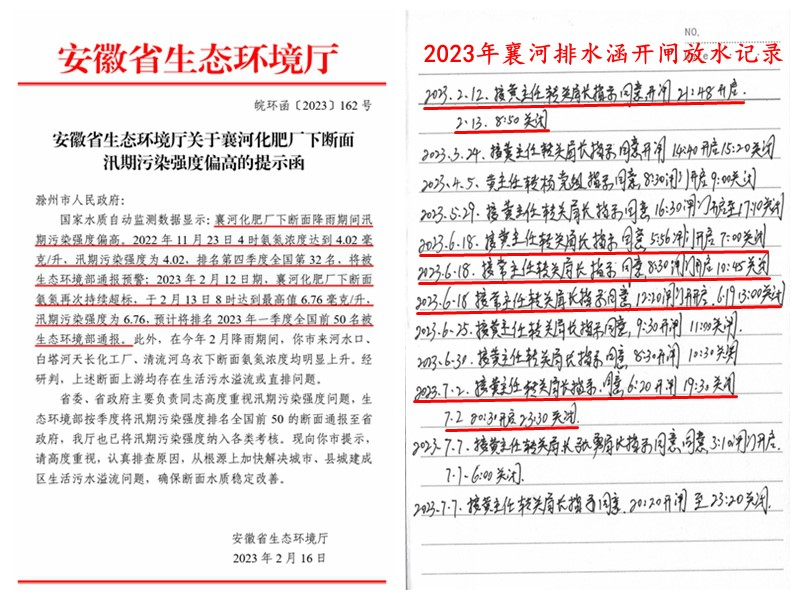 安徽省生态环境厅
皖环函〔2023〕162 号
安徽省生态环境厅关于襄河化肥厂下断面
汛期污染强度偏高的提示函
滁州市人民政府：
国家水质自动监测数据显示：襄河化肥厂下断面降雨期间汛
期污染强度偏高。2022 年 11 月 23 日 4 时氨氮浓度达到 4.02 毫
克/升，汛期污染强度为 4.02，排名第四季度全国第 32 名，将被
生态环境部通报预警；2023 年 2 月 12 日期，襄河化肥厂下断面
氨氮再次持续超标，于 2 月 13 日 8 时达到最高值 6.76 毫克/升，
汛期污染强度为 6.76，预计将排名 2023 年一季度全国前 50 名被
生态环境部通报。此外，在今年 2 月降雨期间，你市来河水口、
白塔河天长化工厂、清流河乌衣下断面氨氮浓度均明显上升。经
研判，上述断面上游均存在生活污水溢流或直排问题。
省委、省政府主要负责同志高度重视汛期污染强度问题，生
态环境部按季度将汛期污染强度排名全国前 50 的断面通报至省
政府，我厅也已将汛期污染强度纳入各类考核。现向你市提示，
请高度重视，认真排查原因，从根源上加快解决城市、县城建成
区生活污水溢流问题，确保断面水质稳定改善。
安徽省生态环境厅
2023 年 2 月 16 日
NO.
2023年襄河排水涵开闸放水记录
2023.2.12.接黄主任转关局长指示同意开闸 21:48开启
2.13. 8:50关闭
2023.3.24.接黄主任转关局长指示同意开闸 14:40开启15:20关闭
2023.4.5.黄主任转杨党组指示同意,8:30闸门开启 9:00关闭
2023.5.29.接黄主任转关局长指示同意,16:30闸门开启至17:10关闭
2023.6.18.接黄主任转关局长指示同意 5:56闸门开启 7:00关闭
2023.6.18.接常主任转关局长指示同意,8:30闸门开启10:45关闭
2023.6.18接常主任转关局长指示同意,12:20闸门开启,6.19 13:00关闭
2023.6.25.接黄主任转关局长指示同意,9:30开闸 11:00关闭
2023.6.30.接黄主任转关局长指示同意 8:30开闸 10:30关闭
2023.7.2.接黄主任转关局长指示,同意6:20开闸 19:30关闭
7.2 20:30开启23:30关闭
2023.7.7.接黄主任转关局长 局长指示同意,同意,3:10闸门开启.
7.7-6:00关闭.
2023.7.7.接黄主任转关局长指示同意,20:20开闸 至23:20关闭